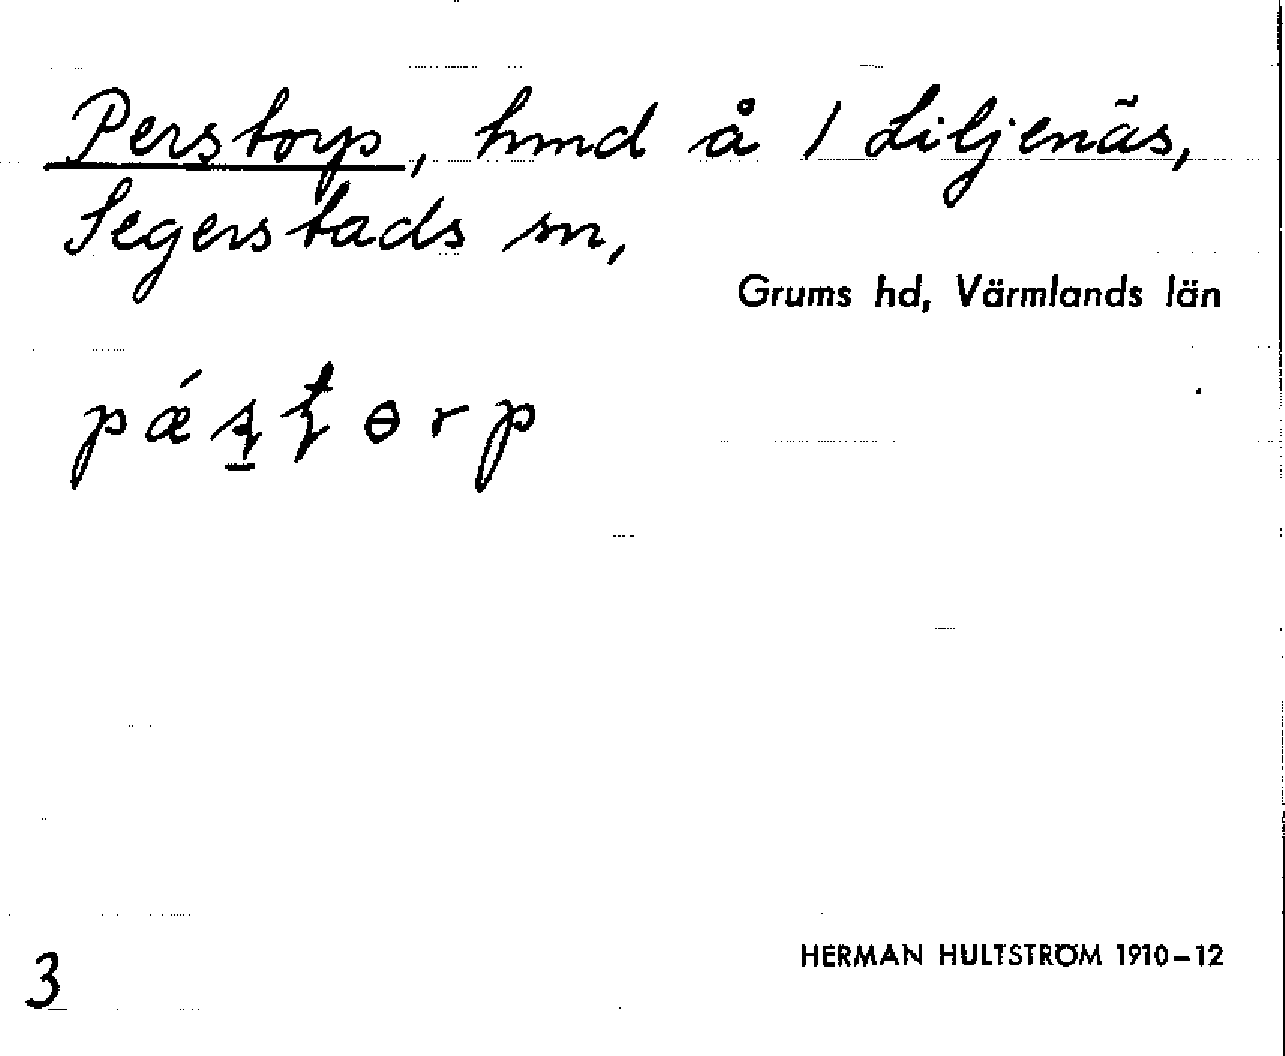 Perstorp, hmd å 1 Liljenäs,
Segerstads sn,
Grums hd, Värmlands län
3
HERMAN HULTSTRÖM 1910–12